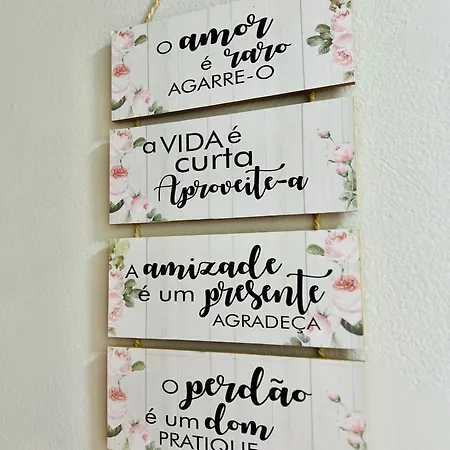 O amor
é raro
AGARRE-O
a VIDA é
curta
Aproveite-a
A amizade
é um presente
AGRADEÇA
O perdão
é um dom
PRATIQUE